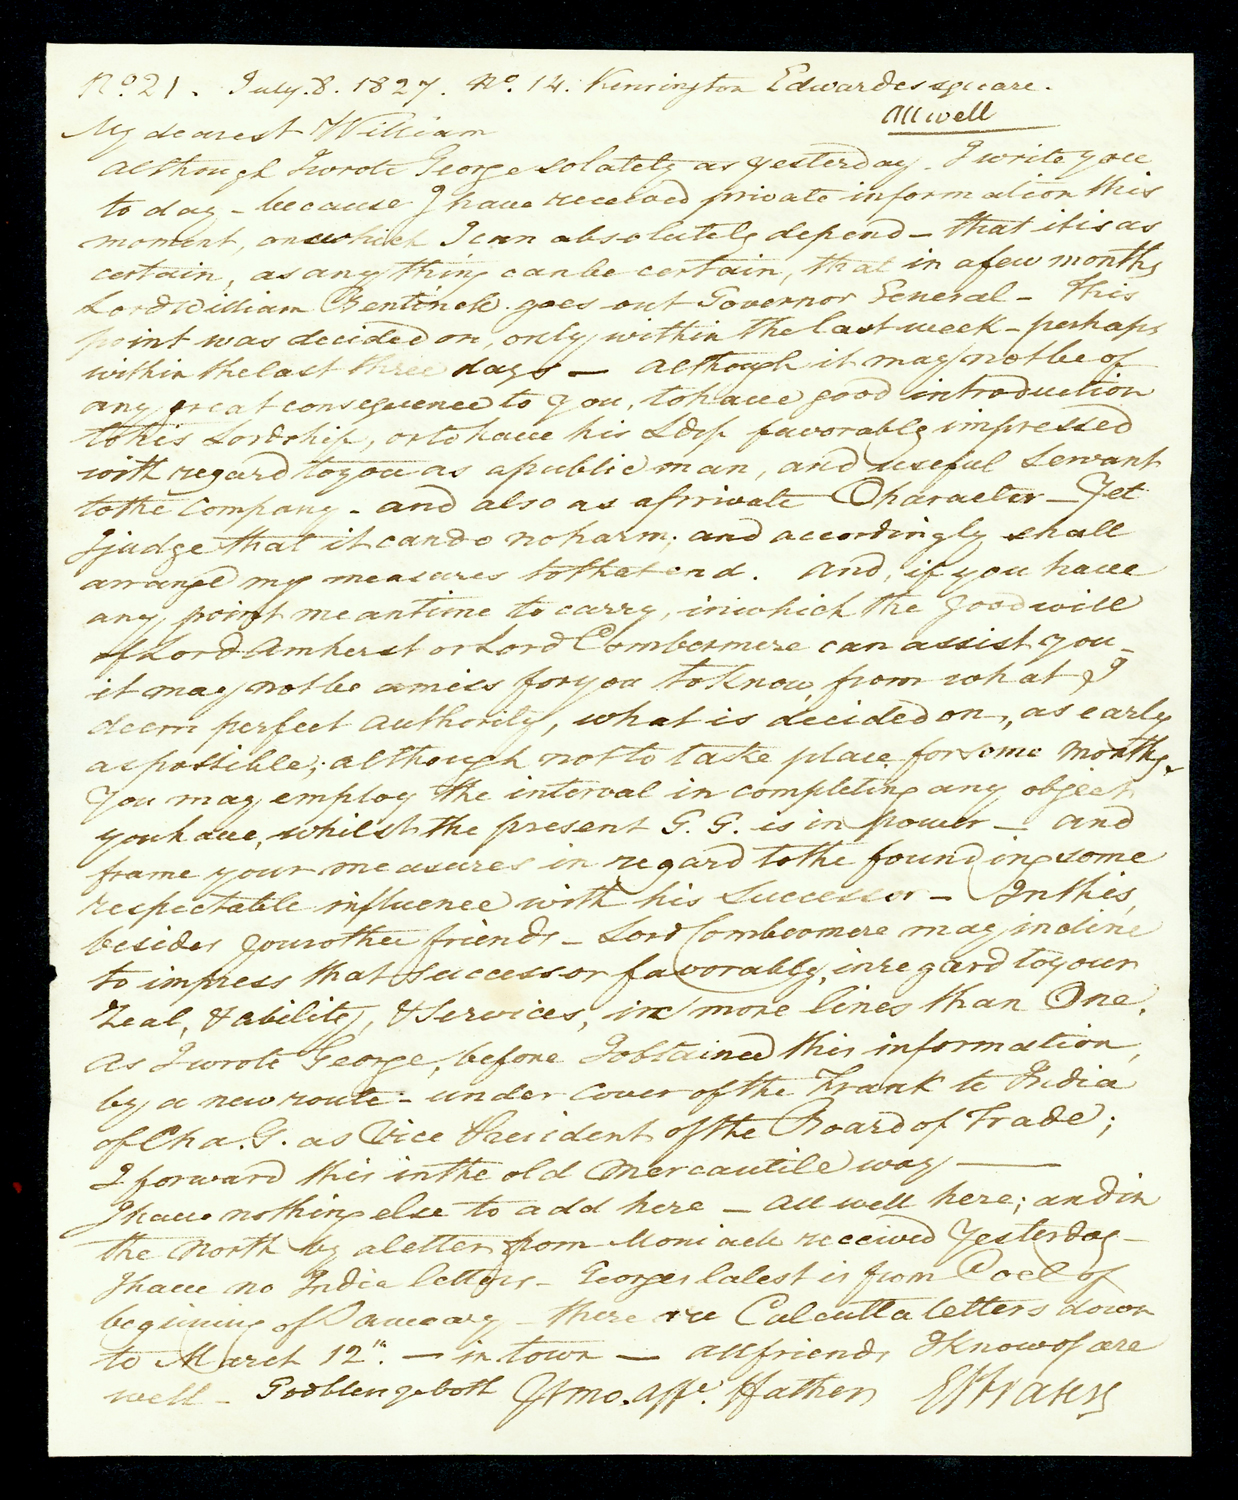 No. 21. July. 8. 1827. No. 14. Kensington Edwardes square.
All well
My dearest William
Although I wrote George so lately as yesterday - I write you
to day - because I have received private information this
moment, on which I can absolutely depend - that it is as
certain, as any thing can be certain, that in a few months
Lord William Bentinck goes out Governor General - This
point was decided on, only within the last week - perhaps
within the last three days - Although it may not be of
any great consequence to you, to have good introduction
to his Lordship, or to have his Ldsp favorably impressed
with regard to you as a public man, and useful Servant
to the Company - and also as a private Character - Yet
I judge that it can do no harm; and accordingly shall
arrange my measures to that end. And, if you have
any point meantime to carry, in which the good will
of Lord Amherst or Lord Combermere can assist you -
it may not be amiss for you to know, from what I
deem perfect authority, what is decided on, as early
as possible; although not to take place for some months.
You may employ the interval in completing any object
you have, whilst the present G. G. is in power - and
frame your measures in regard to the founding some
respectable influence with his Successor - In this,
besides your other friends - Lord Combermere may incline
to impress that successor favorably, in regard to your
Zeal, & ability, & Services, in more lines than One.
As I wrote George, before I obtained this information,
by a new route - under cover of the Frank to India
of Cha. G. as Vice President of the Board of Trade;
I forward this in the old Mercantile way -
I have nothing else to add here - All well here; and in
the North by a letter from Moniack received Yesterday -
I have no India letters - Georges latest is from Coel of
beginning of January - there are Calcutta letters down
to March 12th. - in town - all friends I know of are
well - God bless ye both Yr mo. affe. Father ES Fraser